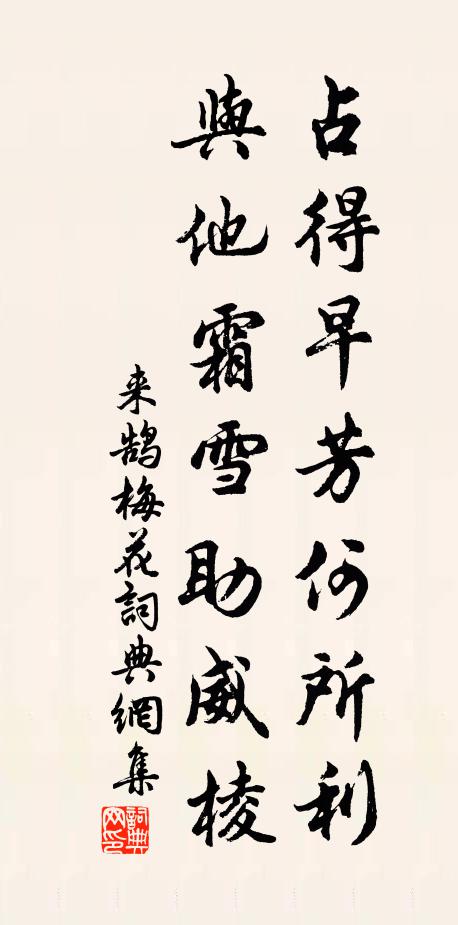 占得早芳何所利
與他霜雪助威棱
来鹄梅花詞典網集
詞典
网印